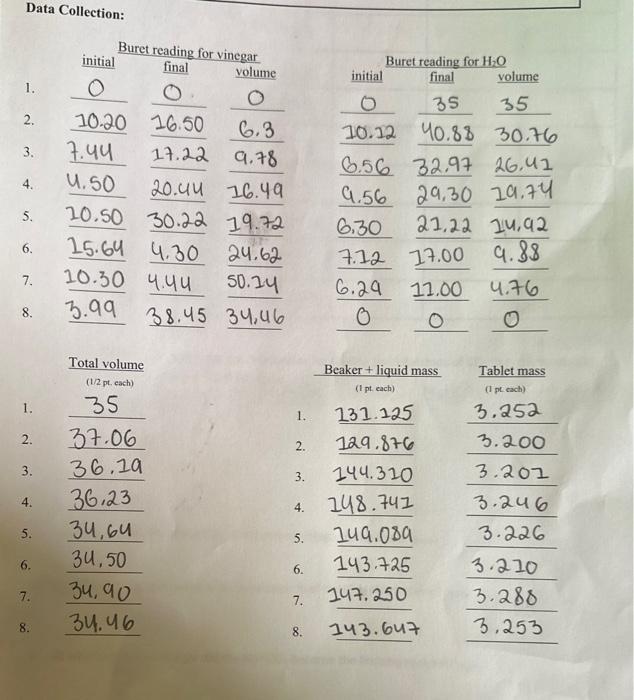 Data Collection:
Buret reading for vinegar
initial final volume
Buret reading for H₂O
initial final volume
1. 0 0 0 0 35 35
2. 10.20 16.50 6.3 10.12 40.88 30.76
3. 7.44 17.22 9.78 6.56 32.97 26.41
4. 4.50 20.44 16.49 9.56 29.30 19.74
5. 10.50 30.22 19.72 6.30 21.22 14.92
6. 15.64 4.30 24.62 7.12 17.00 9.88
7. 10.30 4.44 50.14 6.29 11.00 4.76
8. 3.99 38.45 34.46 0 0 0
Total volume
(1/2 pt. each)
Beaker + liquid mass Tablet mass
(1 pt. each) (1 pt. each)
1. 35 1. 131.125 3.252
2. 37.06 2. 129.876 3.200
3. 36.19 3. 144.310 3.201
4. 36.23 4. 148.741 3.246
5. 34.64 5. 149.089 3.226
6. 34.50 6. 143.725 3.210
7. 34.90 7. 147.250 3.288
8. 34.46 8. 143.647 3.253